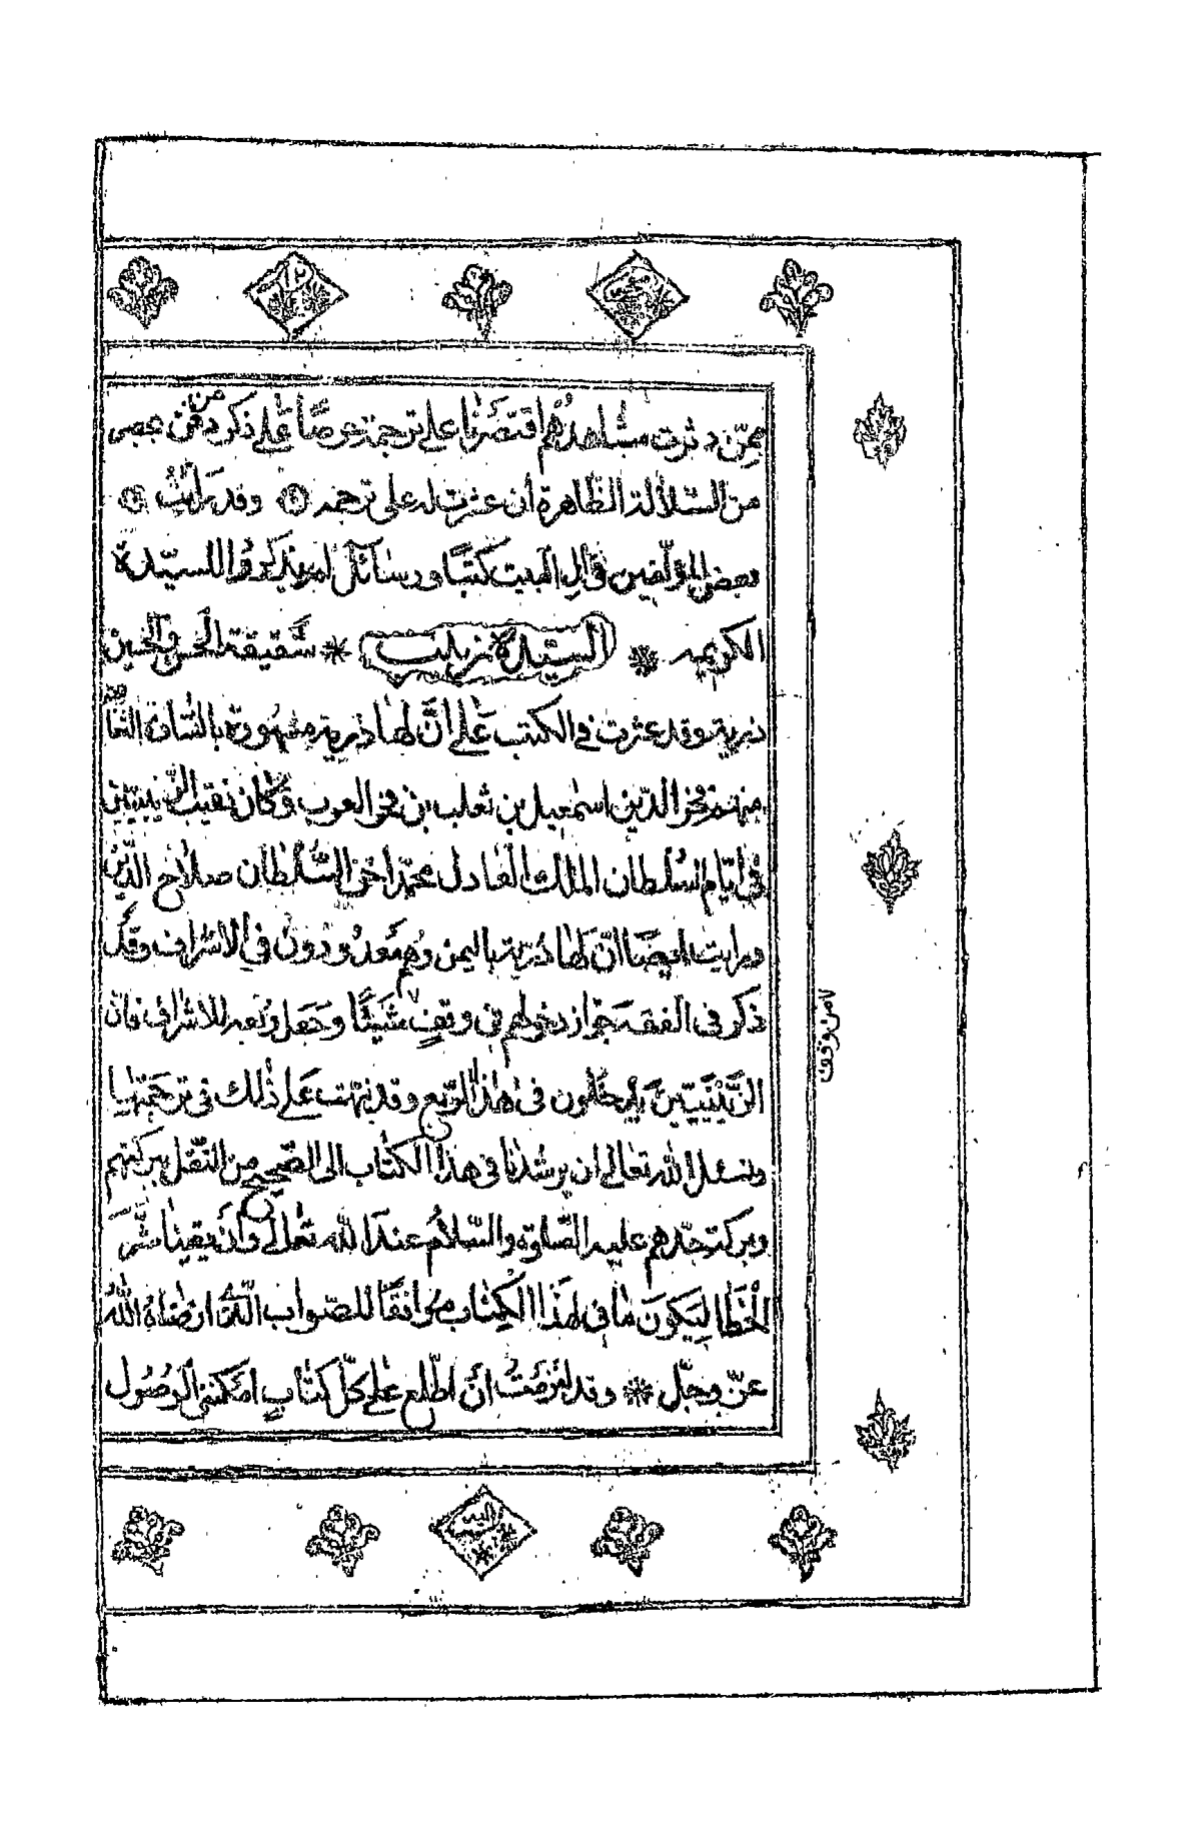 ممّن دثرت مشاهدُهُم اقتصَرْنا على ترجمة حرصًا عَلى ذكر من دفن بمصر
من السّلالة الطّاهرة ان عثرت له على ترجمه وقد رَأيْتُ
بعض المؤلّفين في آل البيت كتبًا ورسآئل لم يذكروُا للسيّدة
الكريمه السّيّدة زينب شقيقة الحسن والحسين
ذرية وقد عثرت في الكتب عَلى انَّ لهَا ذرية مشهورة بالسّادة
منهم فخر الدّين اسمٰعيل بن ثعلب بن فخر العرب وَكان نقيب الزّينبيّين
في ايّام السّلطان الملك العَادل محمّد اخى السّلطان صلاح الدّين
ورايت ايضًا انّ لهَا ذُريّة باليمن وهُم مَعدُودُونْ في الاشراف وقَد
ذكر فى الفقه جَواز دخولهم فى وقفٍ شَيْئًا وجَعل رَيْعه للاشراف فانّ
الزَّيْنَبيّين يَدخلون فى هٰذا الرّيع وقد نبّهت عَلى ذٰلك فى ترجَمتها
ونسئل الله تعالى ان يرشدنا فى هذا الكتاب الى الصّحيح من النّقل ببركتهم
وبركة جدّهم عليه الصّلوٰة والسّلامُ عند الله تعٰالى وَأن يقينا شرَّ
الخَطَا لِيَكونَ مٰا فى هَذا الكِتٰاب مُوافقًا للصّواب الّذى ارتضاهُ اللهُ
عزّ وجلّ وقد التزمْتُ انّ اطّلع عَلى كلّ كتٰابٍ امكننى الوُصُول
لامن وقف